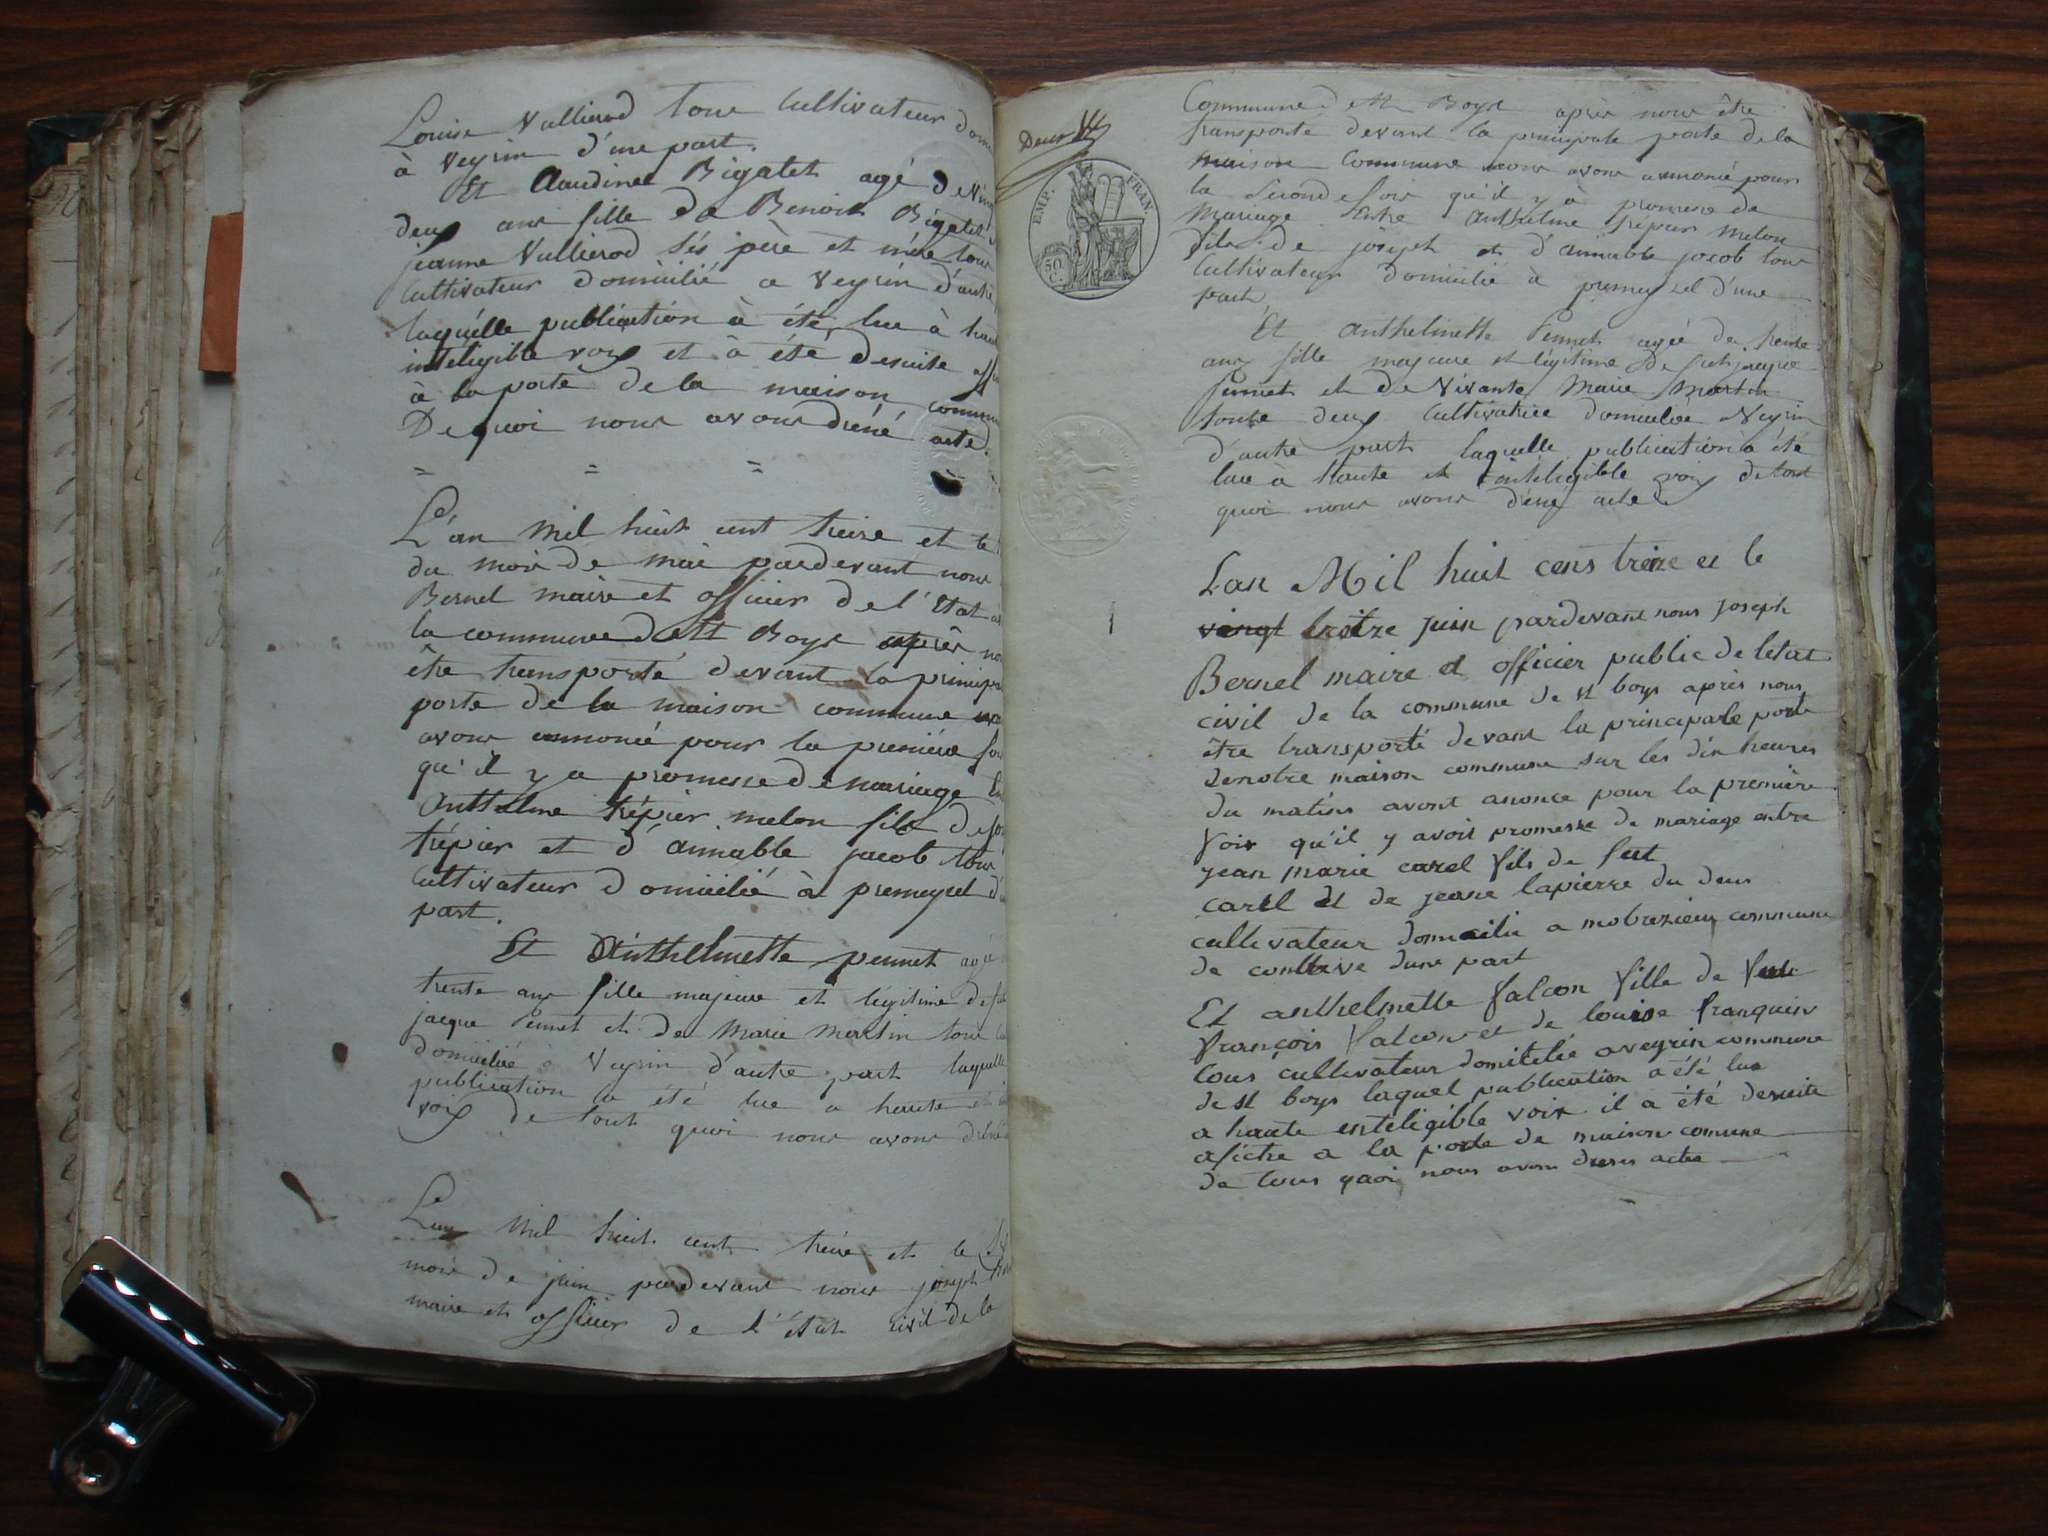 Louise Vullierod tous Cultivateur
à Veyrin d'une part.
Et Claudine Bigalet agé de
deux ans fille de Benoit Bigalet
jeanne Vullierod sés père et mére tous
Cultivateur domicilié a Veyrin d'autre
laquélle publication à été lue à haute
inteligible voix et à été desuite
à la porte de la maison commune
De quoi nous avons dréné acte.
= = =
L'an Mil huit cent treize et le
du mois de mai pardevant nous
Bernel maire et officier de l'Etat
la commune de St Boys après
être transporté devant la principale
porte de la maison commune
avons annoncé pour la premiére fois
qu'il y a promesse de mariage
Anthelme trépier melon fils de
trépier et d'aimable jacob tous
Cultivateur domicilié à premeyzel
part.
Et Anthelmette pennet agé
trente ans fille majeure et légitime
jacque Pennet et de Marie Martin tous
domicilié à Veyrin d'autre part laquelle
publication a été lue a haute
voix de tout quoi nous avons dréné
L'an Mil huit cent treize et le
mois de juin pardevant nous joseph
maire et officier de l'état civil de la
Deux
EMP. FRAN.
50 C.
Commune de St Boys après nous être
transporté devant la principale porte de la
maison Commune nous avons annoncé pour
la seconde fois qu'il y à promesse de
Mariage Entre Anthelme trépier Melon
fils de joseph et d'aimable jacob tous
Cultivateur domicilie à premeyzel d'une
part
Et Anthelmette Pennet agée de trente
ans fille majeure et légitime De feu jacque
Pennet et de Vivante Marie Martin
toute deux Cultivatrice domiciliee Veyrin
d'autre part laquelle publication à été
lue à haute et inteligible voix de tout
quoi nous avons dréné acte
Lan Mil huit cens treize et le
vingt treize juin pardevant nous joseph
Bernel maire et officier public de letat
civil de la commune de st boys après nous
être transporté devant la principale porte
de notre maison commune sur les dix heures
du matins avont anonce pour la première
Voix qu'il y avoit promesse de mariage entre
jean marie carel fils de feu
carel et de jeane lapierre du deux
cultivateur domicilié a mobrezieux commune
de contreve dune part
Et anthelmette falcon fille de feu
françois falcon et de louise franquin
tous cultivateur domicilié a veyrin commune
de st boys laquel publication a été lue
a haute enteligible voix il a été desuite
afiche a la porte de maison comune
de tous quoi nous avons dresés acte